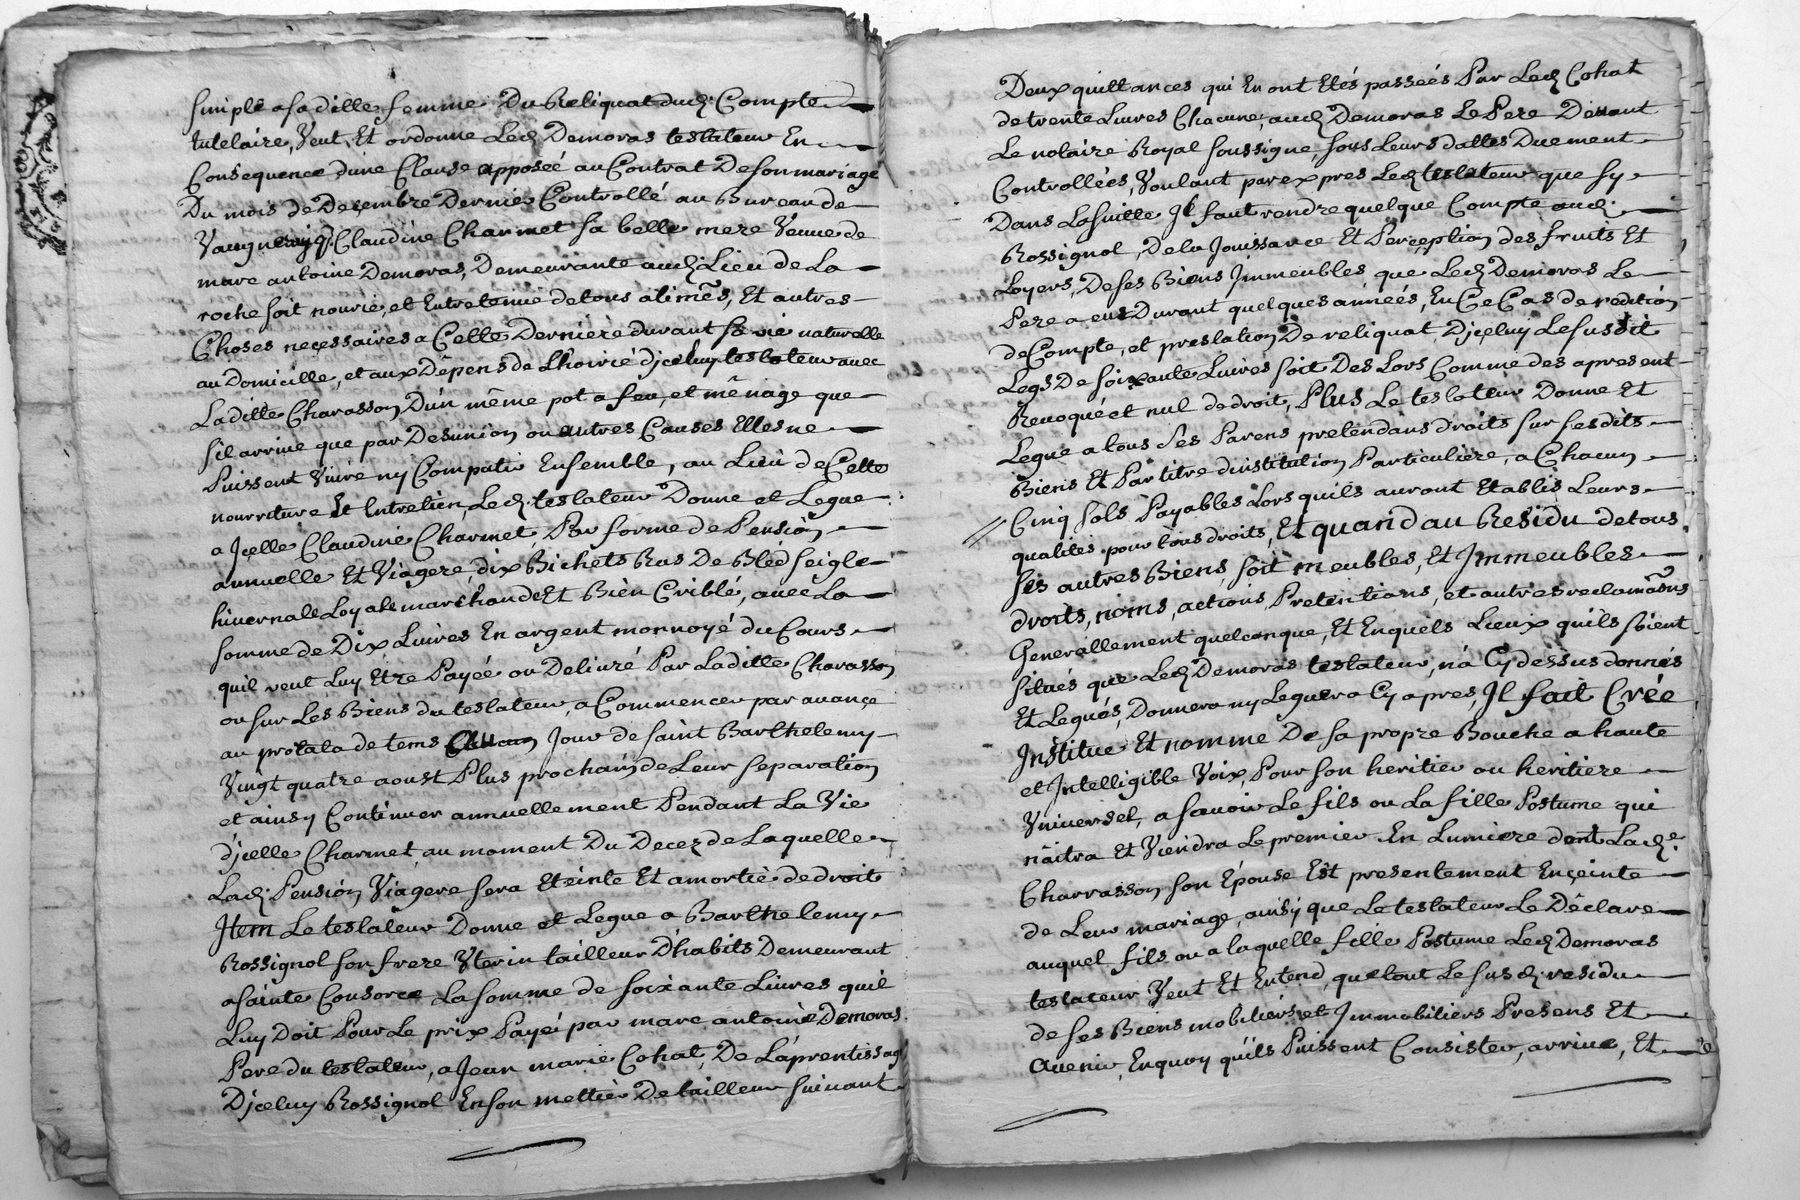 simple a sa ditte femme Du Reliquat dud: Compte
tutelaire, Veut Et ordonne Led Demoras testateur En
Consequence dune Clause apposeé au Contrat De son mariage
Du mois de Decembre Dernier Controllé au Bureau de
Vaugneray q. Claudine Charmet sa belle mere Veuve de
marc antoine Demoras, Demeurante aud: Lieu de La
roche soit nourie, et Entretenue de tous alimẽs, Et autres
Choses necessaires a Cette Derniere durant sa vie naturelle
au Domicille, et aux Dépens de Lhoirie djceluy testateur avec
Laditte Charasson Dun même pot a feu, et ménage que
sil arrive que par Desunion ou autres Causes Elles ne
Puissent Vivre ny Compatir Ensemble, au Lieu de Cette
nourriture Et Entretien, Led: testateur Donne et Legue
a Jcelle Claudine Charmet Par forme de Pension
annuelle Et Viagere, dix Bichets Ras De Bled seigle
hivernale Loyale marchande Et Bien Criblé, avec La
somme de Dix Livres En argent monnoyé du Cours
quil veut Luy Etre Payée ou Delivré Par Laditte Charasson
ou sur Les Biens du testateur, a Commencer par avançe
au protata de tems Jour de saint Barthelemy
Vingt quatre aoust Plus prochain de Leur separation
et ainsy Continuer annuellement Pendant La Vie
djcelle Charmet, au moment Du Decez de Laquelle
Lad: Pension Viagere sera Eteinte Et amortie de droit
Jtem Le testateur Donne et Legue a Barthelemy
Rossignol son frere Vterin tailleur D'habits Demeurant
a sainte Consorce La somme de soixante Livres quil
Luy Doit Pour Le prix Payé par marc antoine Demoras
Pere du testateur, a Jean marie Cohat, De L'aprentissag
Djceluy Rossignol En son mettier De tailleur suivant
Deux quittances qui En ont Etés passeés Par Led Cohat
de trente Livres Chacune, aud Demoras Le Pere Devant
Le notaire Royal soussigne, sous Leurs dattes Duement
Controllées, Voulant par expres Led testateur que sy
Dans La suitte Jl faut rendre quelque Compte aud:
Rossignol, De la Jouissance Et Perçeption des fruits Et
Loyers, De ses Biens Jmmeubles que Led Demoras Le
Pere a eus Durant quelques anneés, En Ce Cas de redition
de Compte, et prestation De reliquat Djceluy Le susdit
Legs De soixante Livres soit Des Lors Comme des apresent
Revoqué et nul de droit, Plus Le testateur Donne Et
Legue a tous Ses Parens pretendans droits sur ses dits
Biens Et Par titre dinstitution Particuliere, a Chacun
Cinq sols Payables Lors quils auront Etablis Leurs
qualites pour tous droits, Et quand au Residu de tous
ses autres Biens soit meubles, Et Jmmeubles
droits, noms, actions, Pretentions, et autres reclamãons
Generallement quelconque, Et Enquels Lieux quils soient
situés que Led Demoras testateur, n'a Cy dessus donnés
Et Legués, Donnera ny Leguera Cy apres, Jl fait Crée
Jnstitue Et nomme De sa propre Bouche a haute
et Jntelligible Voix, Pour son heritier ou heritiere
Vniversel, a savoir Le fils ou La fille Postume qui
naitra Et Viendra Le premier En Lumiere dont Lad.e
Charrasson son Epouse Est presentementEnçeinte
de Leur mariage, ainsy que Le testateur Le Déclare
auquel fils ou a laquelle fille Postume Led Demoras
testateur Veut Et Entend, que tout Le sus d: residu
de ses Biens mobiliers et Jmmobiliers Presens Et
avenir, En quoy quils Puissent Consister, arrive, Et